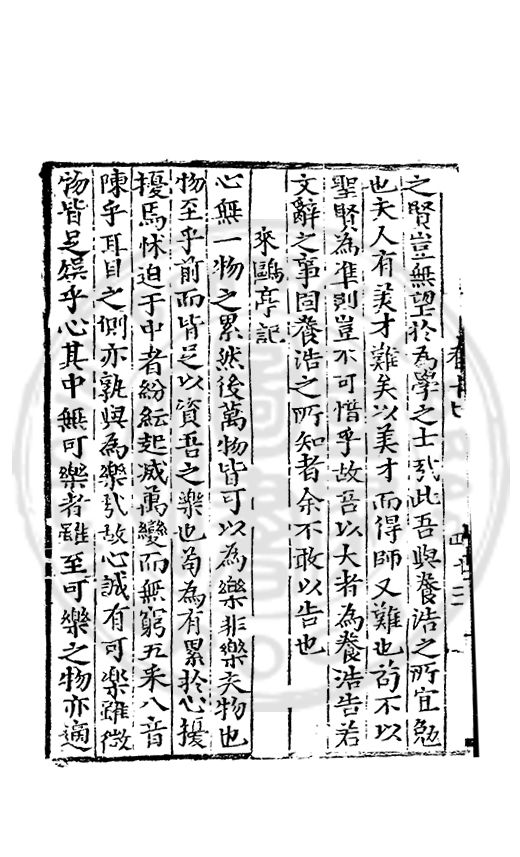 之賢豈無望於為學之士哉此吾與養浩之所宜勉
也夫人有美才難矣以美才而得師又難也茍不以
聖賢為準則豈不可惜乎故吾以大者為養浩告若
文辭之事固養浩之所知者余不敢以告也
來鷗亭記
心無一物之累然後萬物皆可以為樂非樂夫物也
物至乎前而皆足以資吾之樂也茍為有累於心擾
擾焉怵迫于中者紛紜起滅萬變而無窮五采八音
陳乎耳目之側亦孰與為樂哉故心誠有可樂雖微
物皆足娛乎心其中無可樂者雖至可樂之物亦適